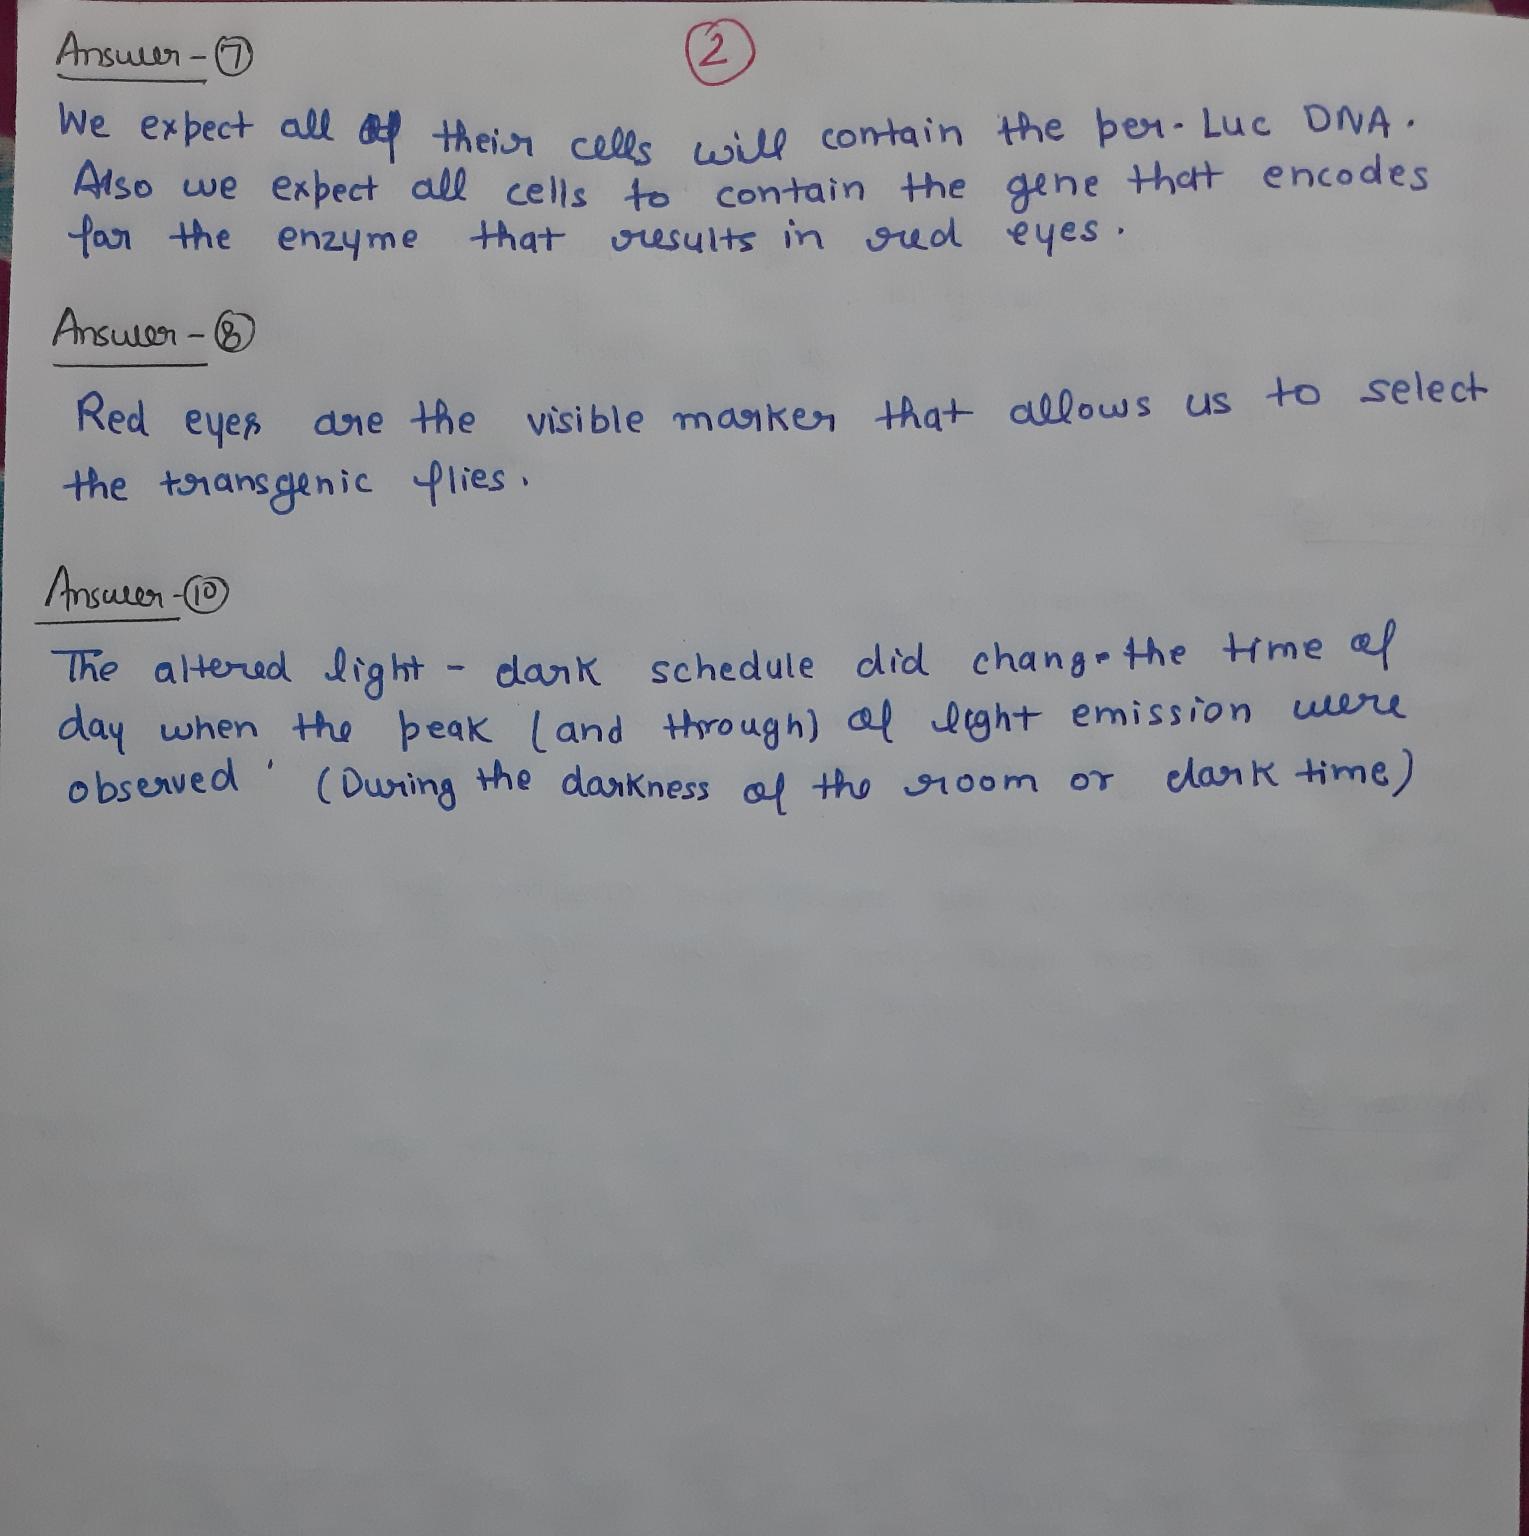 Answer - 7
2
We expect all of their cells will contain the per-Luc DNA.
Also we expect all cells to contain the gene that encodes
for the enzyme that results in red eyes.
Answer - 8
Red eyes are the visible marker that allows us to select
the transgenic flies.
Answer - 10
The altered light - dark schedule did change the time of
day when the peak (and through) of light emission were
observed. (During the darkness of the room or dark time)